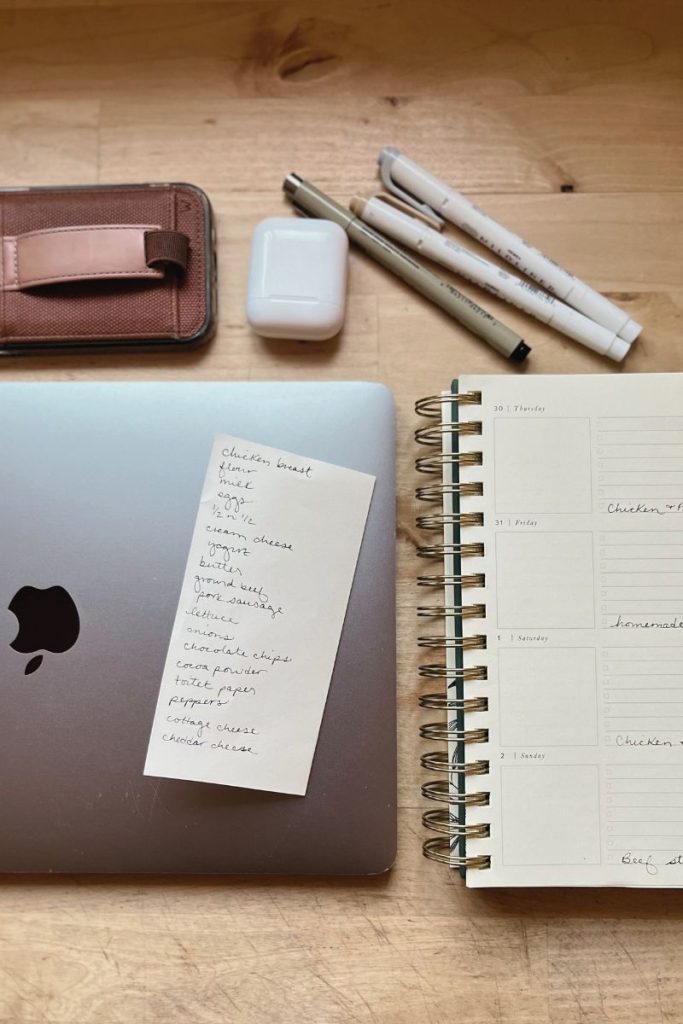 chicken breast
flour
milk
eggs
1/2 n 1/2
cream cheese
yogurt
butter
ground beef
pork sausage
lettuce
onions
chocolate chips
cocoa powder
toilet paper
peppers
cottage cheese
cheddar cheese
30 | Thursday
Chicken +
31 | Friday
homemade
1 | Saturday
Chicken +
2 | Sunday
Beef